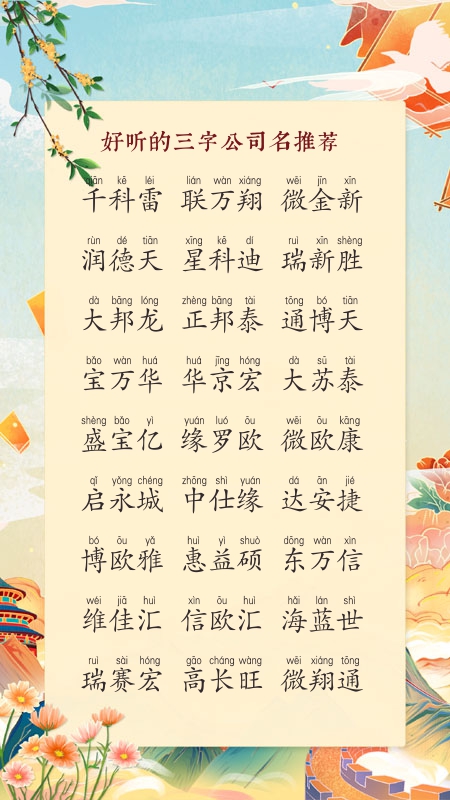 好听的三字公司名推荐
qiān kē léi lián wàn xiáng wēi jīn xīn
千科雷 联万翔 微金新
rùn dé tiān xīng kē dí ruì xīn shèng
润德天 星科迪 瑞新胜
dà bāng lóng zhèng bāng tài tōng bó tiān
大邦龙 正邦泰 通博天
bǎo wàn huá huá jīng hóng dà sū tài
宝万华 华京宏 大苏泰
shèng bǎo yì yuán luó ōu wēi ōu kāng
盛宝亿 缘罗欧 微欧康
qǐ yǒng chéng zhōng shì yuán dá ān jié
启永城 中仕缘 达安捷
bó ōu yǎ huì yì shuò dōng wàn xìn
博欧雅 惠益硕 东万信
wéi jiā huì xìn ōu huì hǎi lán shì
维佳汇 信欧汇 海蓝世
ruì sài hóng gāo cháng wàng wēi xiáng tōng
瑞赛宏 高长旺 微翔通